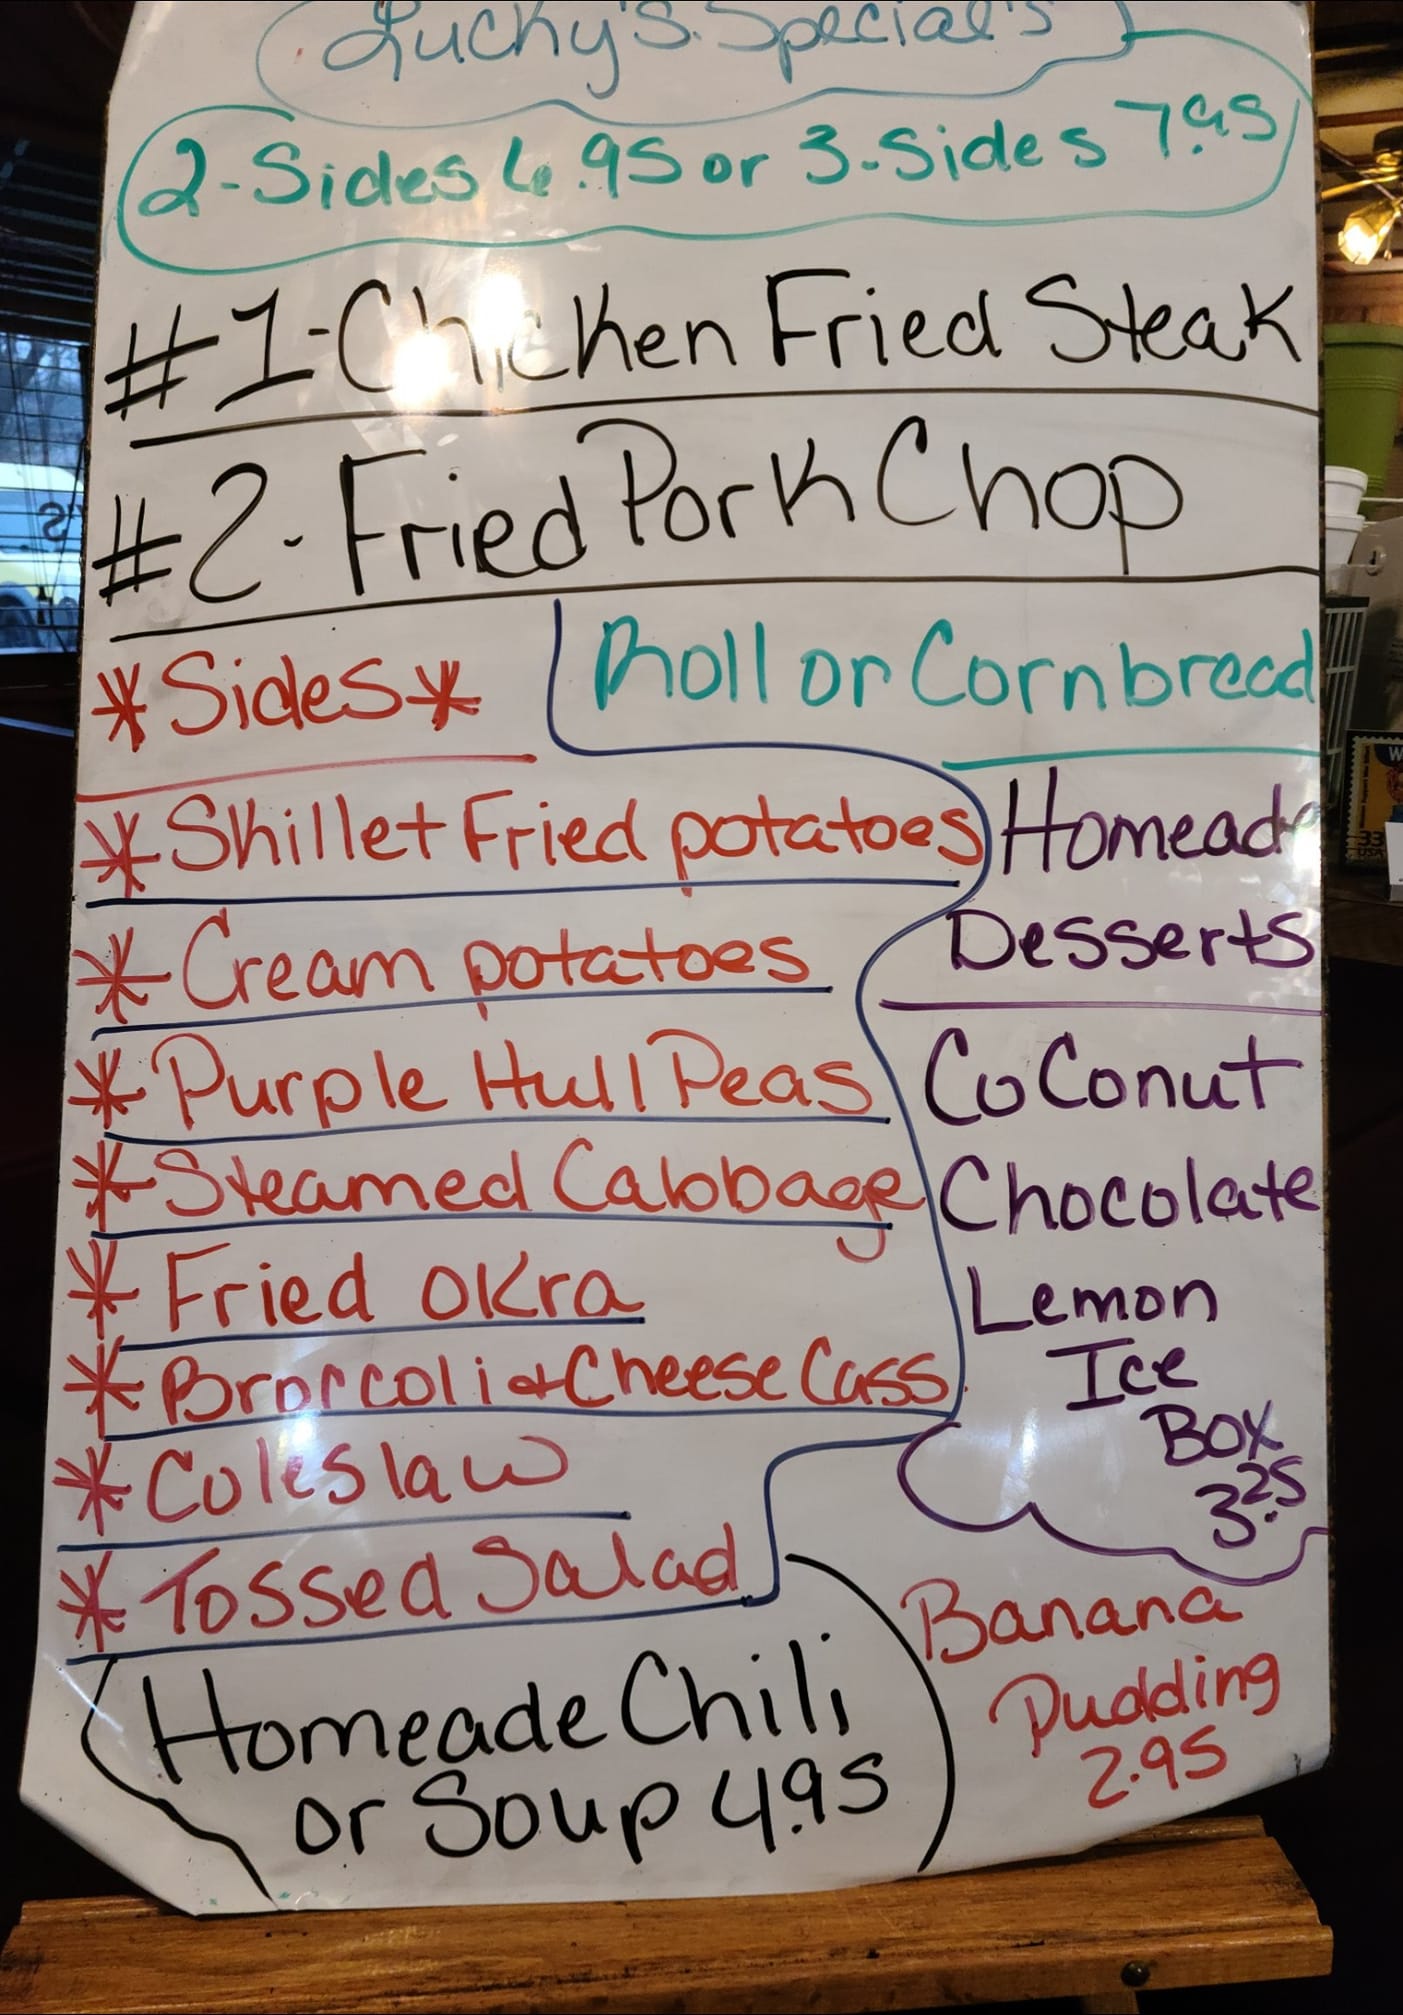 Lucky's Special's
2-Sides 6.95 or 3-Sides 7.95
#1-Chicken Fried Steak
#2-Fried Pork Chop
*Sides*
Roll or Cornbread
*Skillet Fried potatoes
*Cream potatoes
*Purple Hull Peas
*Steamed Cabbage
*Fried okra
*Broccoli & Cheese Cass.
*Coleslaw
*Tossed Salad
Homeade
Desserts
CoConut
Chocolate
Lemon
Ice
Box
3.25
Banana
Pudding
2.95
Homeade Chili
or Soup 4.95
33
USA